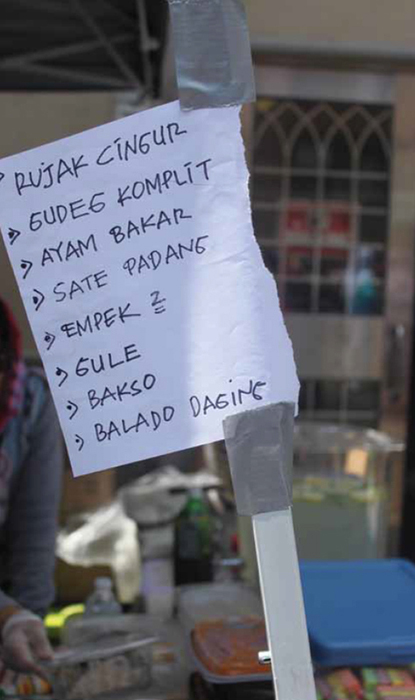 RUJAK CINGUR
GUDEG KOMPLIT
AYAM BAKAR
SATE PADANG
EMPEK 2
GULE
BAKSO
BALADO DAGING